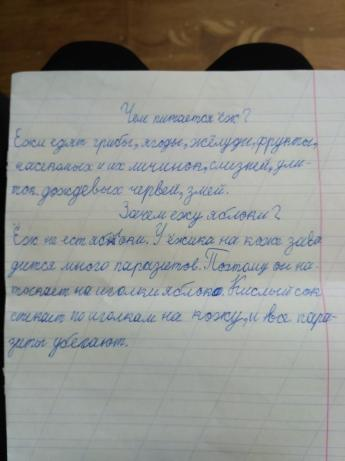 Чем питается ёж?
Ежи едят грибы, ягоды, жёлуди, фрукты,
насекомых и их личинок, слизней, ули-
ток дождевых червей, змей.
Зачем ежу яблоки?
Ёж не ест яблоки. У ёжика на коже заво-
дится много паразитов. Поэтому он на-
токает на иголки яблоко. Кислый сок
стекает по иголкам на кожу, и все пара-
зиты убегают.